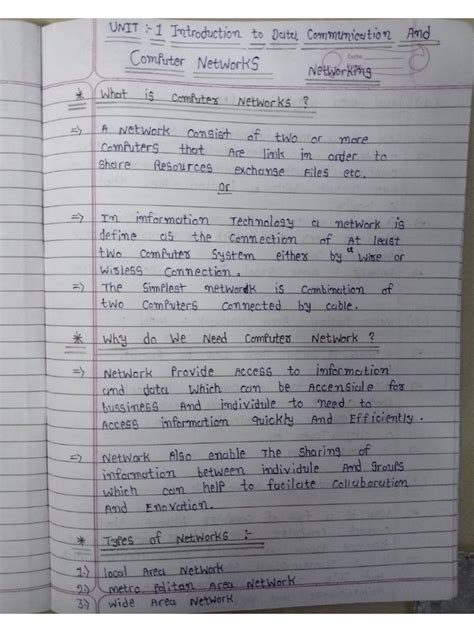 UNIT :- 1 Introduction to Data Communication And
Computer Networks Networking
* What is Computer Networks ?
=> A Network Consist of two or more
Computers that Are link in order to
Share Resources exchange Files etc.
Or
=> In information Technology a network is
define as the Connection of At least
two Computer System either by a wire or
Wisless Connection.
=> The Simplest network is Combination of
two Computers Connected by cable.
* Why do We Need Computer Network ?
=> Network Provide Access to information
and data Which can be Accensiale for
bussiness And individule to need to
Access information Quickly And Efficiently.
=> Network Also enable The Sharing of
information between individule And groups
Which can help to facilate Collaboration
And Enovation.
* Types of Networks :-
1.) local Area Network
2.) metro Politan Area Network
3.) Wide Area Network